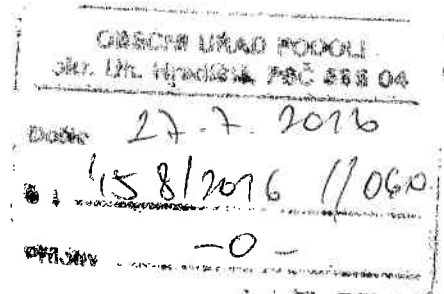 OBECNÍ ÚŘAD PODOLÍ
okr. Uh. Hradiště, PSČ 686 04
Došlo 27.7.2016
158/2016 //
-0-